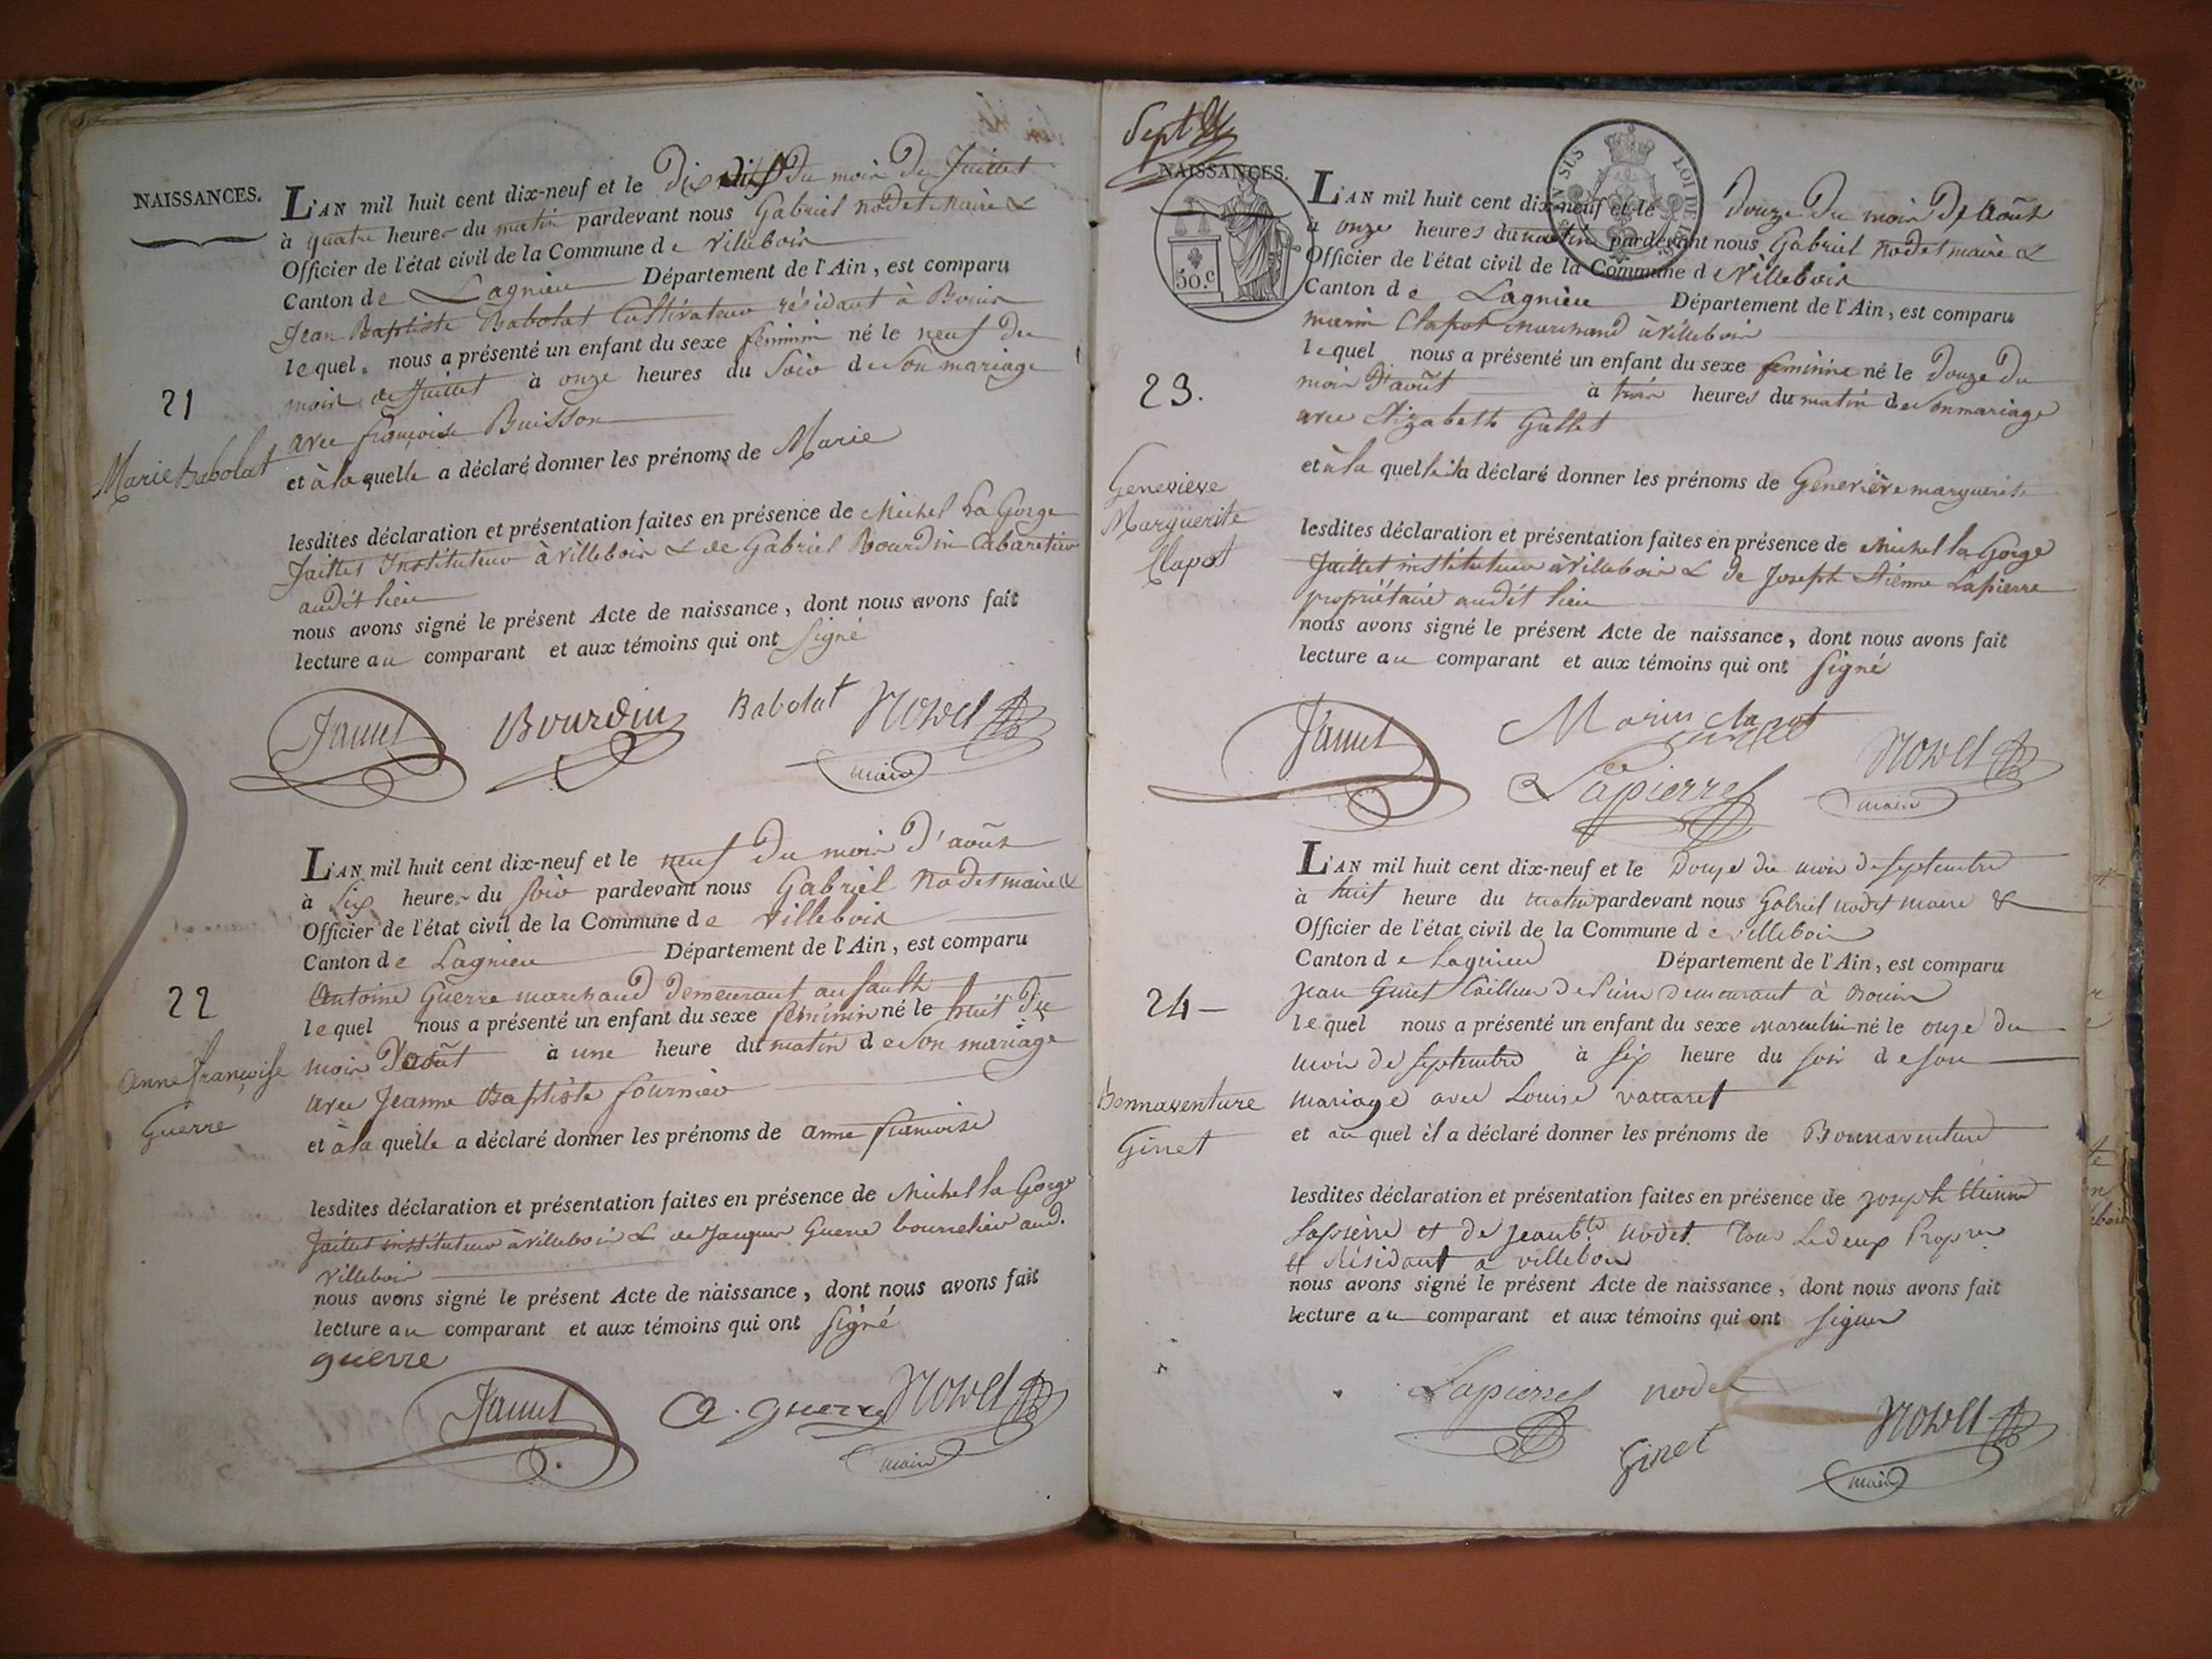 NAISSANCES.
L'AN mil huit cent dix-neuf et le Dix du mois De Juillet
à quatre heures du matin pardevant nous Gabriel Nodet Maire &
Officier de l'état civil de la Commune de Villebois
Canton de Lagnieu Département de l'Ain, est comparu
Jean Baptiste Babolat Cultivateur résidant à Bouis
lequel nous a présenté un enfant du sexe féminin né le neuf du
mois de Juillet à onze heures du Soir de Son mariage
avec françoise Buisson
et à laquelle a déclaré donner les prénoms de Marie
21
Marie Babolat
lesdites déclaration et présentation faites en présence de Michel La Gorge
Jaillet Instituteur à Villebois & de Gabriel Bourdin Cabaretier
audit lieu
nous avons signé le présent Acte de naissance, dont nous avons fait
lecture au comparant et aux témoins qui ont Signé
Bourdin Babolat Nodet
maire
L'AN mil huit cent dix-neuf et le neuf Du mois D'août
à Six heures du Soir pardevant nous Gabriel Nodet maire &
Officier de l'état civil de la Commune de Villebois
Canton de Lagnieu Département de l'Ain, est comparu
Antoine Guerre marchand Demeurant au Sault
lequel nous a présenté un enfant du sexe féminin né le huit Du
mois D'août à une heure du matin de Son mariage
avec Jeanne Baptiste fournier
et à la quelle a déclaré donner les prénoms de anne françoise
22
Anne françoise
Guerre
lesdites déclaration et présentation faites en présence de Michel la Gorge
Jaillet instituteur à Villebois & de Jacques Guerre bourrelier aud.
Villebois
nous avons signé le présent Acte de naissance, dont nous avons fait
lecture au comparant et aux témoins qui ont Signé
guerre
a. guerre Nodet
maire
NAISSANCES.
50.c
L'AN mil huit cent dix-neuf et le Douze Du mois D'Août
à onze heures du matin pardevant nous Gabriel Nodet maire &
Officier de l'état civil de la Commune de Villebois
Canton de Lagnieu Département de l'Ain, est comparu
marin Clapot marchand à Villebois
lequel nous a présenté un enfant du sexe féminine né le Douze Du
mois D'août à trois heures du matin de Son mariage
avec Elizabeth Gallet
et à la quelle il a déclaré donner les prénoms de Geneviève marguerite
23.
Geneviève
Marguerite
Clapot
lesdites déclaration et présentation faites en présence de Michel la Gorge
Jaillet instituteur à Villebois & De Joseph Etienne Lapierre
propriétaire audit lieu
nous avons signé le présent Acte de naissance, dont nous avons fait
lecture au comparant et aux témoins qui ont Signé
Marin clapot
Lapierre Nodet
maire
L'AN mil huit cent dix-neuf et le Douze du mois de Septembre
à huit heure du matin pardevant nous Gabriel nodet maire &
Officier de l'état civil de la Commune de villebois
Canton de Lagnieu Département de l'Ain, est comparu
Jean Ginet Tailleur De Pierre Demeurant à Bouis
lequel nous a présenté un enfant du sexe masculin né le onze du
mois de Septembre à Six heure du soir de son
mariage avec Louise vattaret
et au quel il a déclaré donner les prénoms de Bonnaventure
24
Bonnaventure
Ginet
lesdites déclaration et présentation faites en présence de joseph Etienne
Lapierre et de Jean bte. nodet. tous Ledeux Propres
et Résidant a villebois
nous avons signé le présent Acte de naissance, dont nous avons fait
lecture au comparant et aux témoins qui ont signer
Lapierre nodet
Ginet Nodet
maire